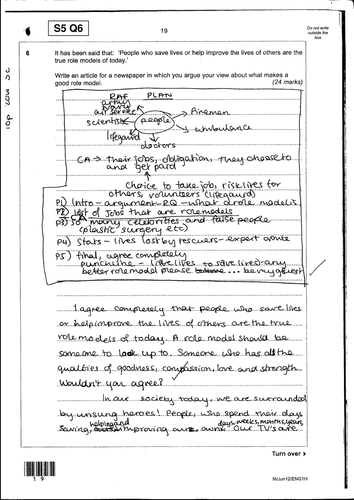 S5 Q6
19
Do not write
outside the
box
6
It has been said that: 'People who save lives or help improve the lives of others are the
true role models of today.'
Write an article for a newspaper in which you argue your view about what makes a
good role model.
(24 marks)
RAF PLAN
army
air service
scientists people Firemen
ambulance
lifegaurd
doctors
CA → their jobs, obligation, they choose to
and get paid
Choice to take job, risk lives for
others, volunteers (lifegaurd)
P1) Intro - argument - RQ - what a role model is
P2) list of jobs that are rolemodels
P3) so many celebrities and false people
(plastic surgery etc)
P4) Stats - lives lost by rescuers - expert quote
P5) final, agree completely
punchline - lives to save lives - any
better role model please ... be my guest
I agree completely that people who save lives
or help improve the lives of others are the true
role models of today. A role model should be
someone to look up to. Someone who has all the
qualities of goodness, compassion, love and strength.
Wouldn't you agree?
In our society today, we are surrounded
by unsung heroes! People, who spend their days
helping and days, weeks, months, years,
saving, improving our own. Our TV's are
Turn over
19
M/Jun12/ENG1H